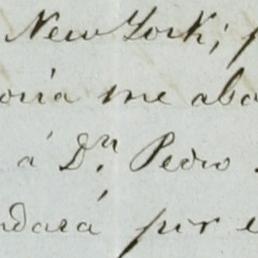 New York; p
oría me abo
á Dn. Pedro
ndará por e